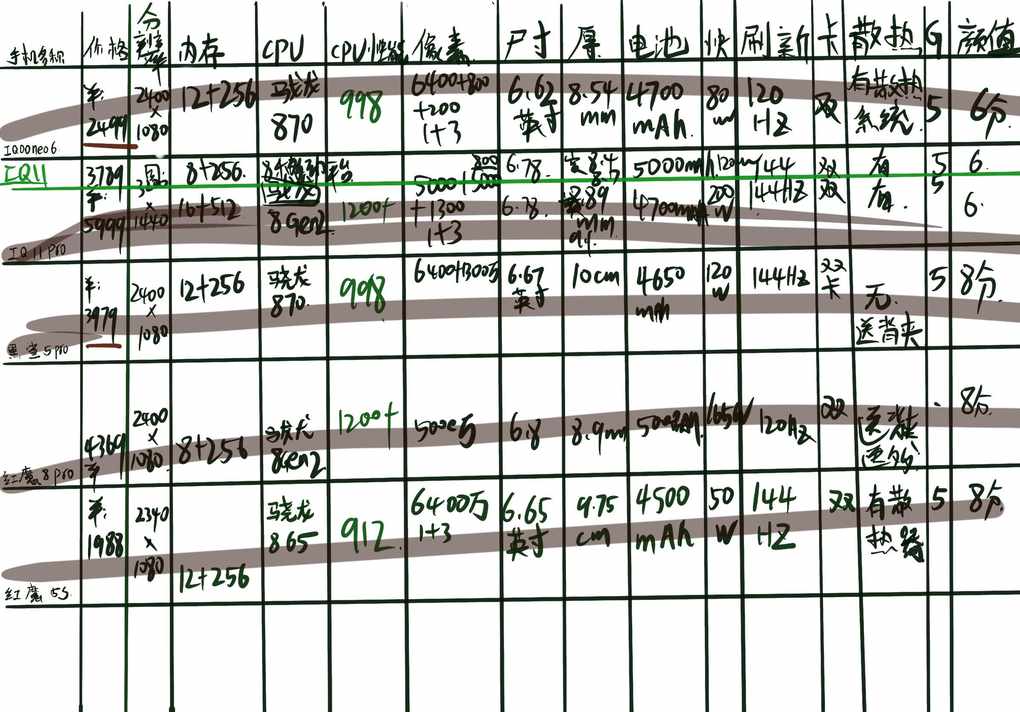 手机名称 价格 分辨率 内存 CPU CPU性能 像素 尺寸 厚 电池 快 刷新 卡 散热 G 颜值
IQOOneo6 ¥: 2499 2400×1080 12+256 骁龙870 998 6400+800+200 1+3 6.62英寸 8.54mm 4700mAh 80w 120HZ 双 有散热系统 5 6分
IQ11 3789 8+256 5000+ 800 6.78 5000mAh 120w 144 双 有 5 6.
IQ11Pro ¥ 5999 1440 16+512 8Gen2 1200+ +1300 1+3 6.78 8.89mm 4700mAh 200W 144HZ 双 有 5 6.
黑鲨5pro ¥: 3979 2400×1080 12+256 骁龙870 998 6400+1300万 6.67英寸 10cm 4650mAh 120W 144Hz 双卡 无. 送背夹 5 8分
红魔8pro 4369¥ 2400×1080 8+256 骁龙8Gen2 1200+ 5000万 6.8 8.9mm 165W 120Hz 双 8分
红魔5S ¥: 1988 2340×1080 12+256 骁龙865 912 6400万 1+3 6.65英寸 9.75cm 4500mAh 50W 144HZ 双 有散热器 5 8分